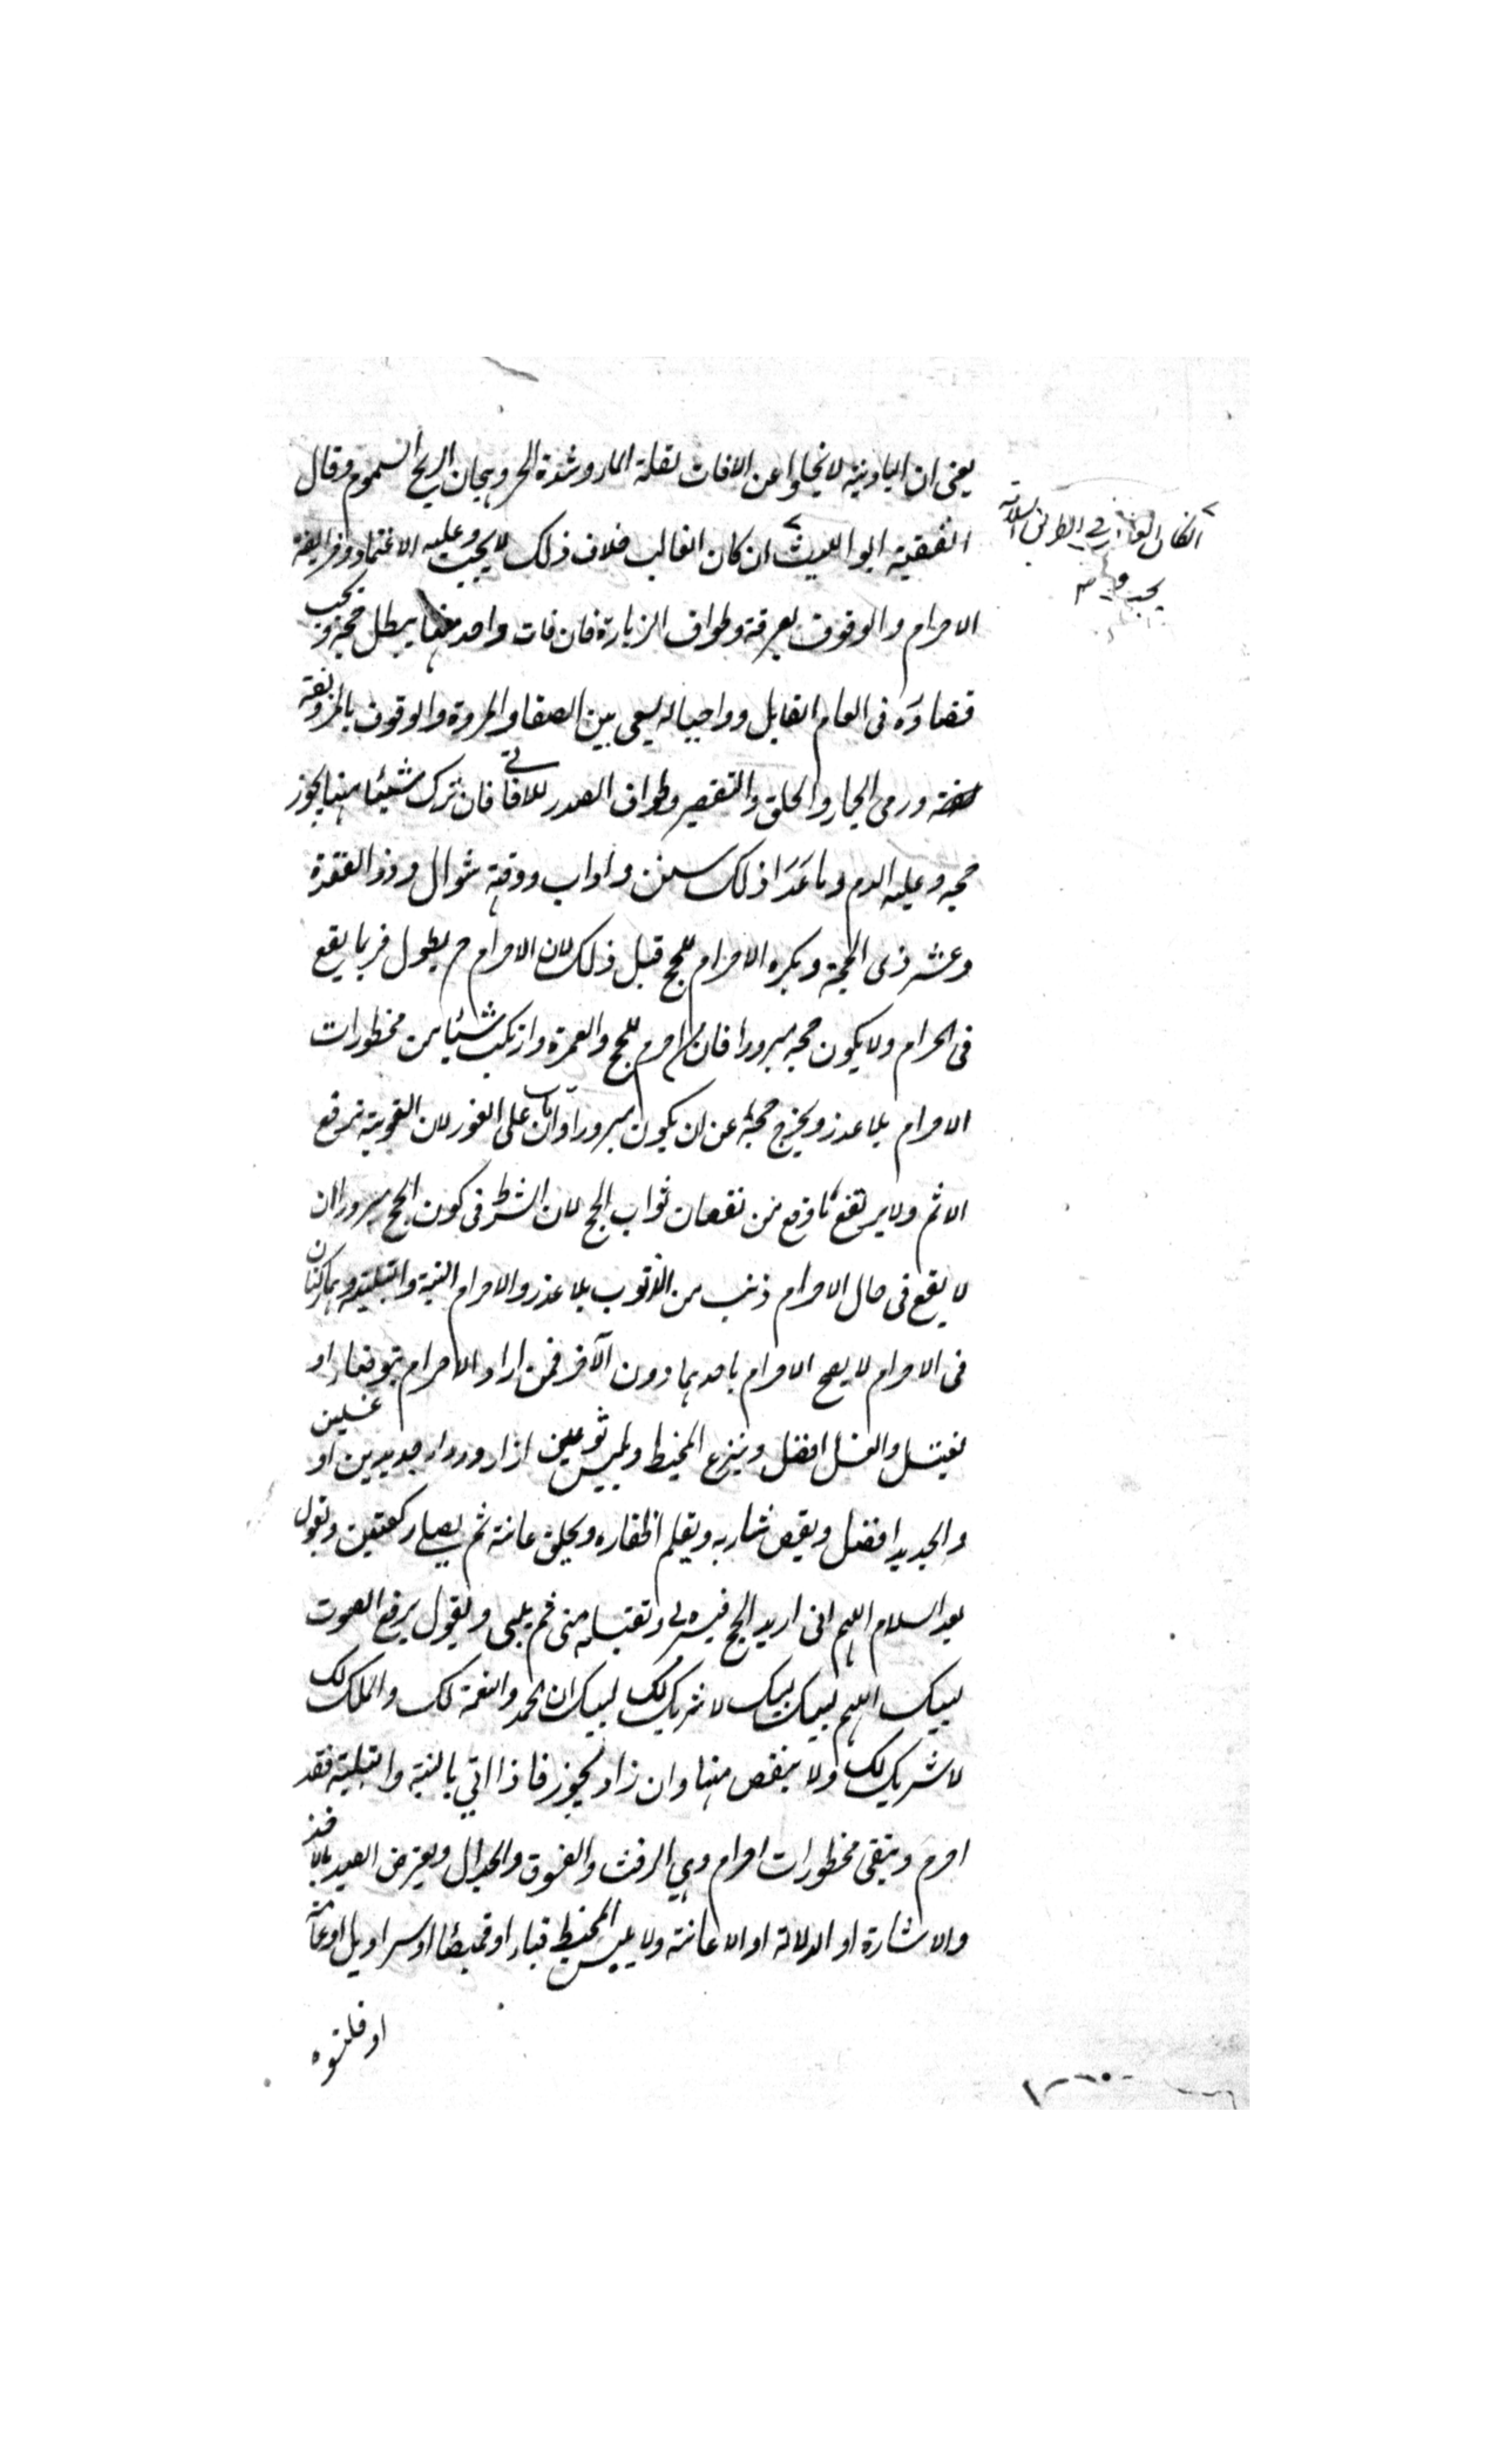 يعنى ان البادية لا يخلوا عن الافات لقلة الماء وشدة الحر وهيجان الريح السموم وقال
الفقيه ابو الليث ان كان الغالب خلاف ذلك لا يجب وعليه الاعتماد وفرايضه
الاحرام والوقوف بعرفة وطواف الزيارة فان فات واحد منها يبطل حجه ويجب
قضاؤه فى العام القابل وواجباته السعى بين الصفا والمروة والوقوف بالمزدلفة
ورمى الجمار والحلق والتقصير وطواف الصدر للافاقى فان ترك شيئا منها يجوز
حجه وعليه الدم وما عَدَا ذلك سنن واداب ووقته شوال وذو القعدة
وعشر ذى الحجة ويكره الاحرام للحج قبل ذلك لان الاحرام ح يطول فربما يقع
فى الحرام ولا يكون حجه مبرورا فان احرم للحج والعمرة وارتكب شيئا من محظورات
الاحرام بلا عذر ويخرج حجه عن ان يكون مبرورا وان تاب على الفور لان التوبة ترفع
الاثم ولا يرتفع ما وقع من نقصان ثواب الحج لان الشرط فى كون الحج مبرورا ان
لا يقع فى حال الاحرام ذنب من الذنوب بلا عذر والاحرام النية والتلبية وهما ركنان
فى الاحرام لا يصح الاحرام باحدهما دون الآخر فمن اراد الاحرام يتوضاء او
يغتسل والغسل افضل وينزع المخيط ويلبس ثوبين ازار ورداء جديدين او غسيلين
والجديد افضل ويقص شاربه ويقلم اظفاره ويحلق عانته ثم يصلى ركعتين ويقول
بعد السلام اللهم انى اريد الحج فيسره لى وتقبله منى ثم يلبى ويقول برفع الصوت
لبيك اللهم لبيك لبيك لا شريك لك لبيك ان الحمد والنعمة لك والملك لك
لا شريك لك ولا ينقص منها وان زاد يجوز فاذا اتى بالنية والتلبية فقد
احرم ويتقى محظورات احرام وهي الرفث والفسوق والجدال الصيد بالاخذ
والاشارة او الدلالة او الاعانة ولا يلبس المخيط قباء او قميصا او سراويل او عمامة
او قلنسوة